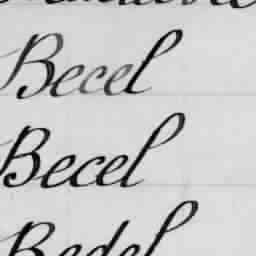 Becel
Becel
Bedel